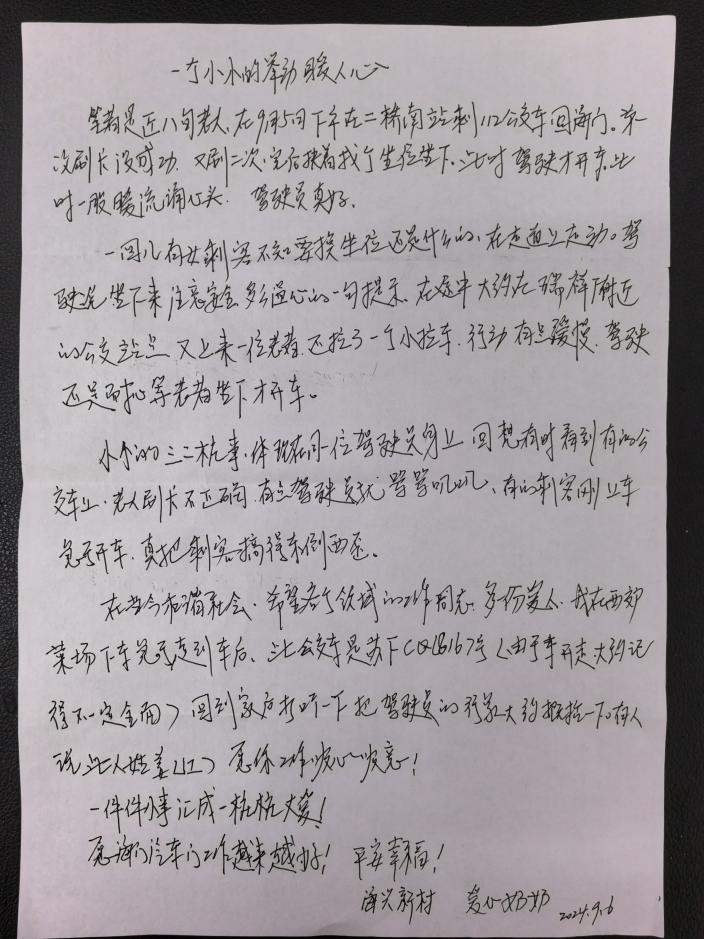 一个小小的举动暖人心
笔者是近八旬老人,在9月5日下午在二桥南站乘112公交车回海门。第一
次刷卡没成功,又刷二次,完后扶着找个坐位坐下,此时驾驶才开车。此
时一股暖流涌心头,驾驶员真好。
一回儿有女乘客不知要换坐位还是什么的,在走道上走动。驾
驶说坐下来注意安全,多么温心的一句提示。在途中大约在瑞祥附近
的公交站点又上来一位老者,还拉了一个小拉车,行动有点缓慢,驾驶
还是耐心等老者坐下才开车。
小小的三二桩事,体现在同一位驾驶员身上,回想有时看到有的公
交车上,老人刷卡不正确,有些驾驶员就骂骂叽叽,有的乘客刚上车
就开车,真把乘客搞得东倒西歪。
在当今和谐社会,希望各个领域的工作同志,多份爱心,我在西郊
菜场下车走到车后,此公交车是苏F 8167号(由于车开走大约记
得不一定全面)回到家后打听一下把驾驶员的行家大约概括一下。有人
说此人姓姜(江)愿你工作顺心顺意!
一件件小事汇成一桩桩大爱!
愿海门汽车门工作越来越好!平安幸福!
海兴新村 爱心奶奶 2024.9.6